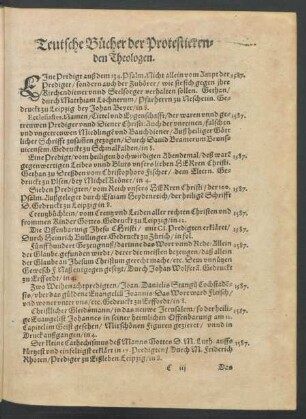 Teutsche Bücher der Protestieren-
den Theologen.
Eine Predigt auß dem 134. Psalm. Nicht allein vom Ampt der 1587.
Prediger / sondern auch der Zuhörer / wie sie sich gegen ihre
Kirchendiener vnnd Seelsorger verhalten sollen. Gethan /
durch Matthiam Lochnerum / Pfarrherrn zu
Gedruckt zu Leipzig bey Johan Beyer / in 8.
Ecclesiastes. Namen / Tittel vnd Eigenschafft / der waren vnnd ge- 1587.
trewen Prediger vnnd Diener Christi. Auch der vntrewen / falschen
vnd vngetrewen Miedtlinge vnd Bauchdiener / Auß heiliger Göttli-
cher Schrifft zusamen gezogen / Durch
Gedruckt zu Schmalkalden / in 8.
Eine Predigt / vom heiligen hochwirdigen Abendmal / deß war 1587.
gegenwertigen Leibes vnnd Bluts vnsers lieben HErren Christi.
Gethan zu Dreßden vom Christophoro Fischer / dem Eltern. Ge-
druckt zu / bey Michel Kröner / in 4.
Sieben Predigten / vom Reich vnsers HErren Christi / der 110. 1587.
Psalm. Außgelegt durch Esaiam Heydenreich / der heiligen Schrifft
D. Gedruckt zu Leipzig in 8.
Creutzbüchlein / vom Creutz vnd Leiden aller rechten Christen vnd 1587.
frommen Kinder Gottes. Gedruckt zu Leipzig / in 12.
Die Offenbarung Jhesu Christi / mit CI. Predigten erkläret / 1587.
Durch Heinrich Bullinger. Gedruckt zu Zürich / in fol.
Fünffhundert Bezeugnus / darinne das Wort vnnd Rede Allein 1587.
der Glaube gefunden wirdt / derer die meisten bezeugen / daß allein
der Glaube an Jhesum Christum gerecht mache / etc. Den vnnützen
Gewesch entgegen gesetzt / Durch Johan Wolferß. Gedruckt
zu Erffordt / in 4.
Zwo Weihenachtpredigten / Joan. Danielis Stangij Cochstädi- 1587.
sis / vber das güldene Euangelij Joannis Das Wort ward fleisch /
vnd wonet vnter vns / etc. Gedruckt zu Erffordt / in 8.
Christlicher Gleidtsmann / in das newe Jerusalem / so der heili- 1587.
ge Euangelist Johannes in seiner heimlichen Offenbarung am 21.
Capiteln Geist gesehen / Mit schönen Figuren gezieret / vnnd in
Druck außgangen / in 4.
Der kleine Catechismus deß Manns Gottes D. M. Luth. auffs 1587.
kürtzest vnd einfeltigst erklärt in 17. Predigten / Durch M. Friderich
Rhoten / Prediger zu Eißleben. Leipzig / in 8.
C iij Das